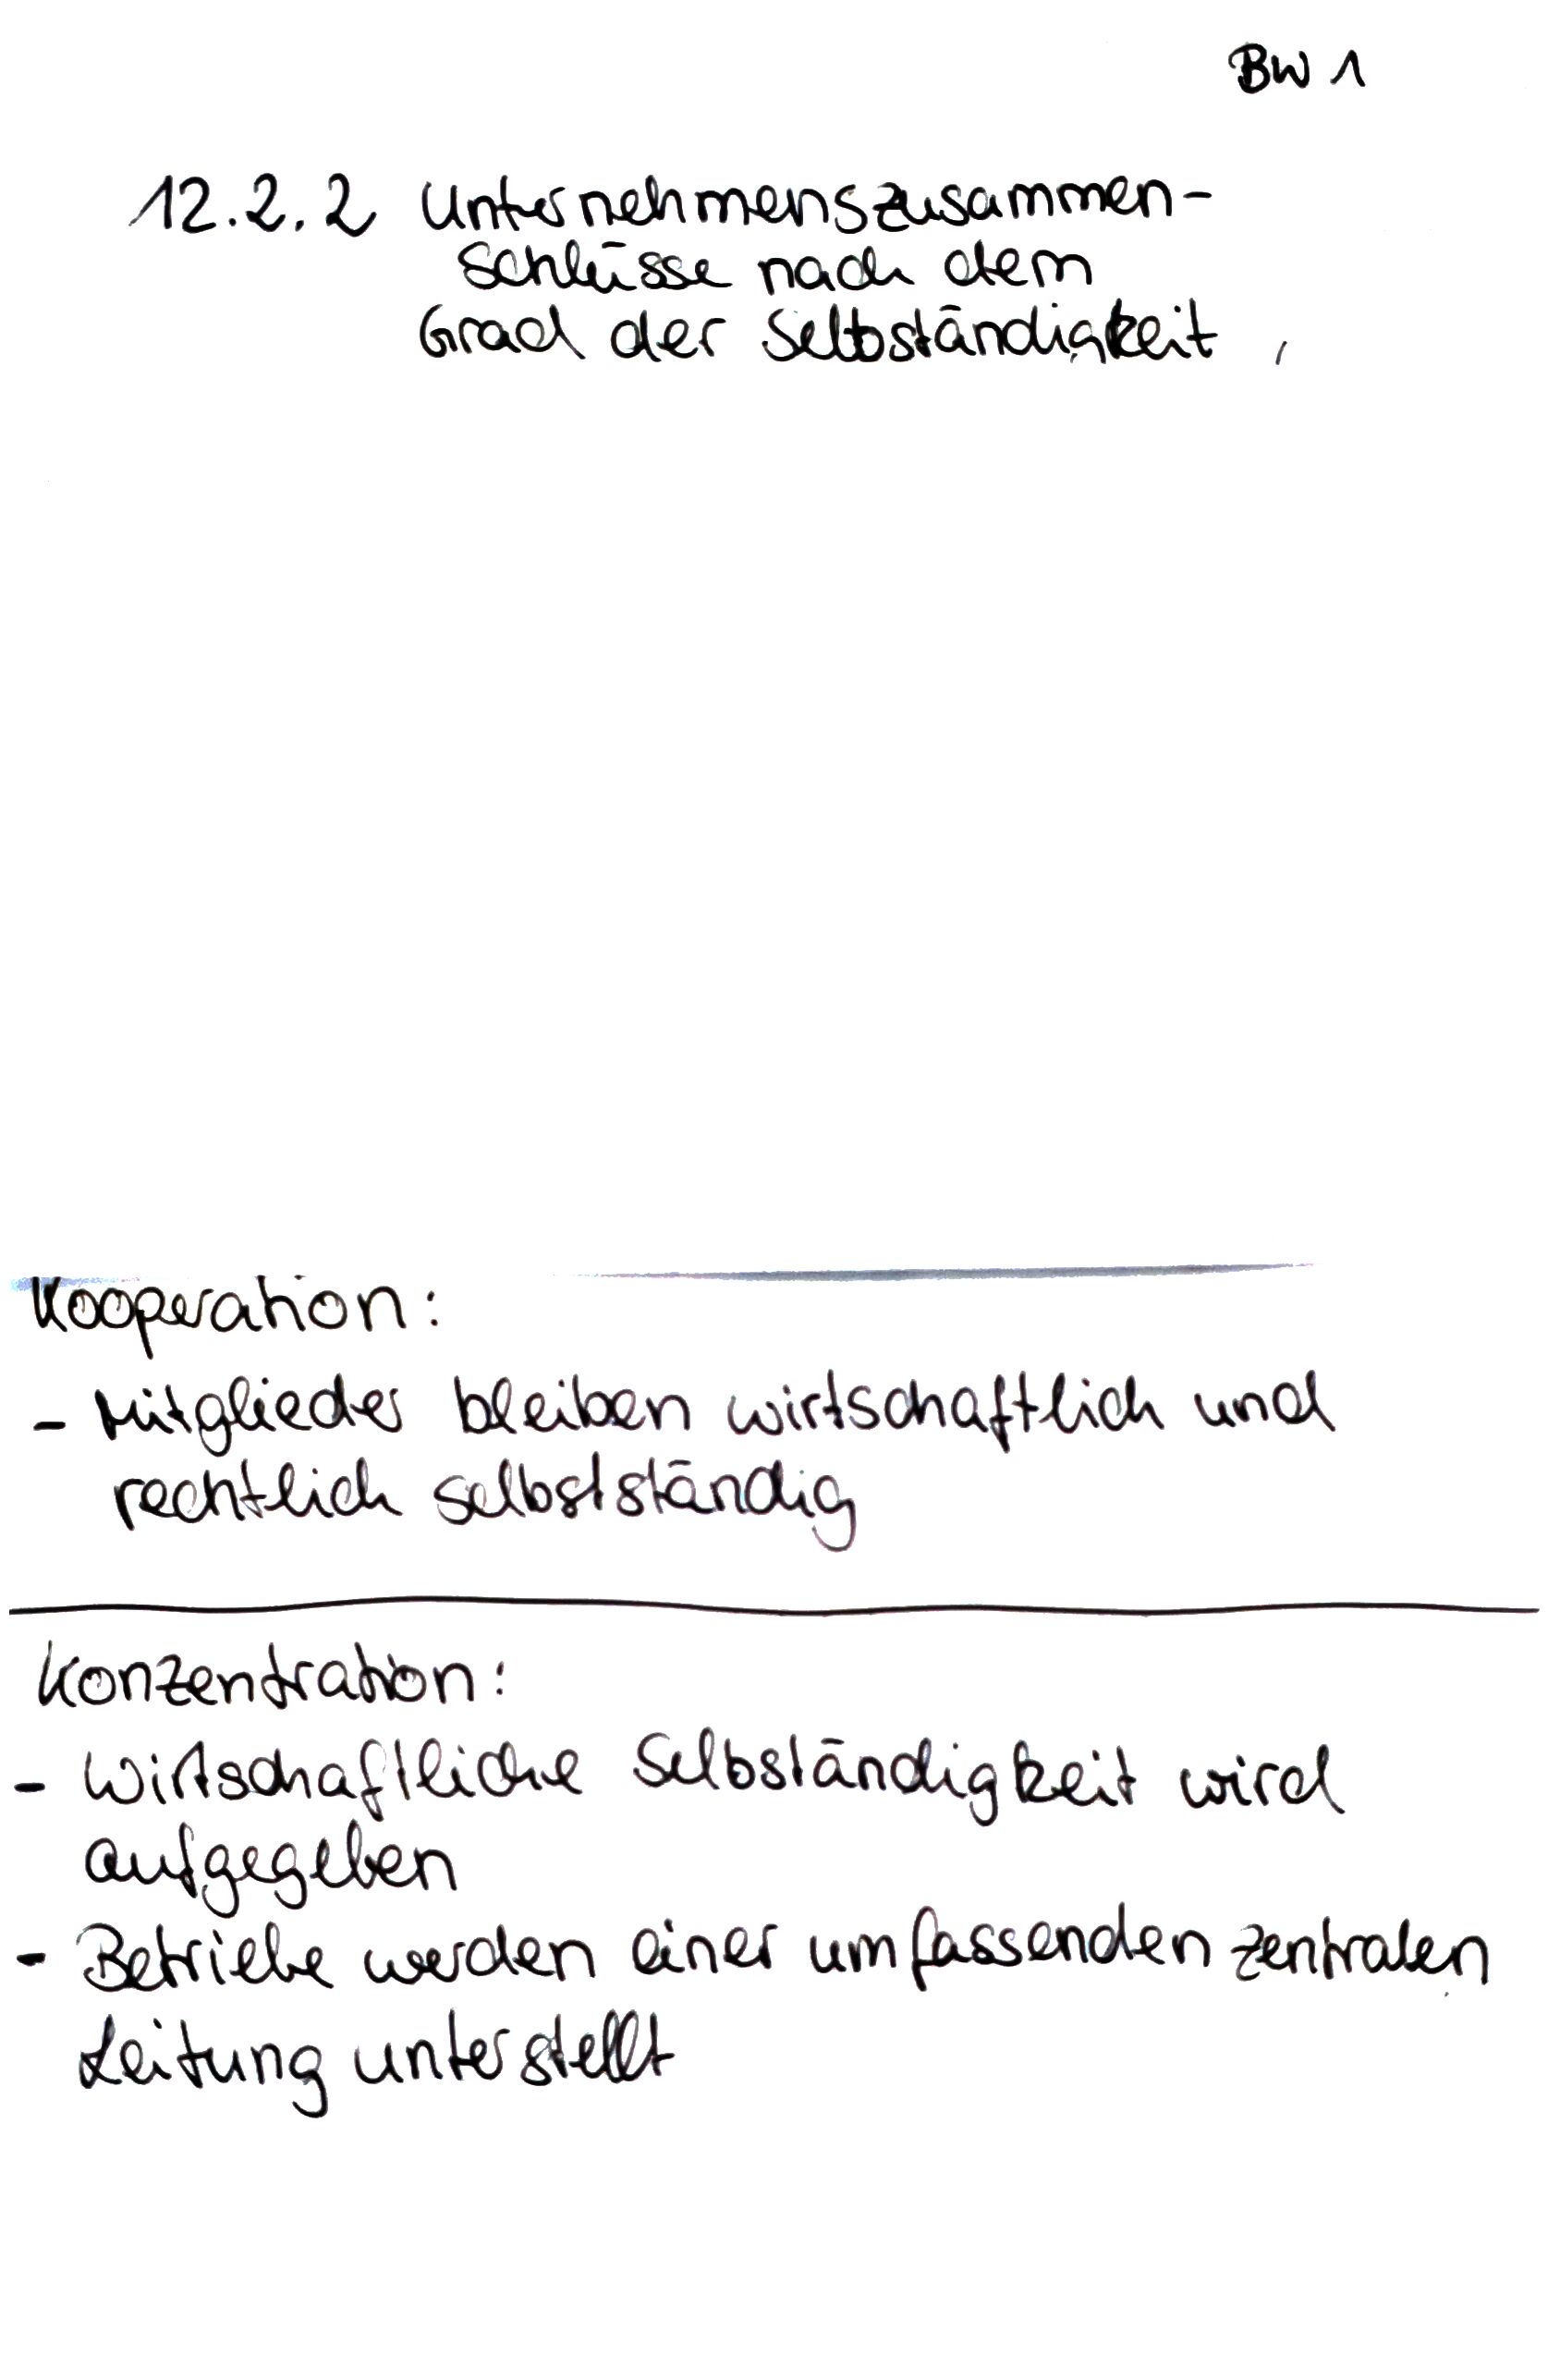 BW 1
12.2.2 Unternehmenszusammen-
schlüsse nach dem
Grad der Selbständigkeit
Kooperation:
- Mitglieder bleiben wirtschaftlich und
rechtlich selbstständig
Konzentration:
- Wirtschaftliche Selbständigkeit wird
aufgegeben
- Betriebe werden einer umfassenden zentralen
Leitung unterstellt